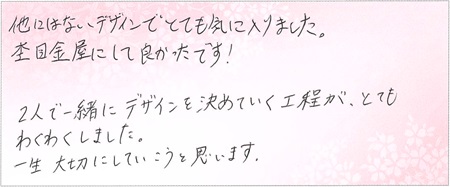 他にはないデザインでとても気に入りました。
杢目金屋にして良かったです!
2人で一緒にデザインを決めていく工程が、とても
わくわくしました。
一生大切にしていこうと思います.